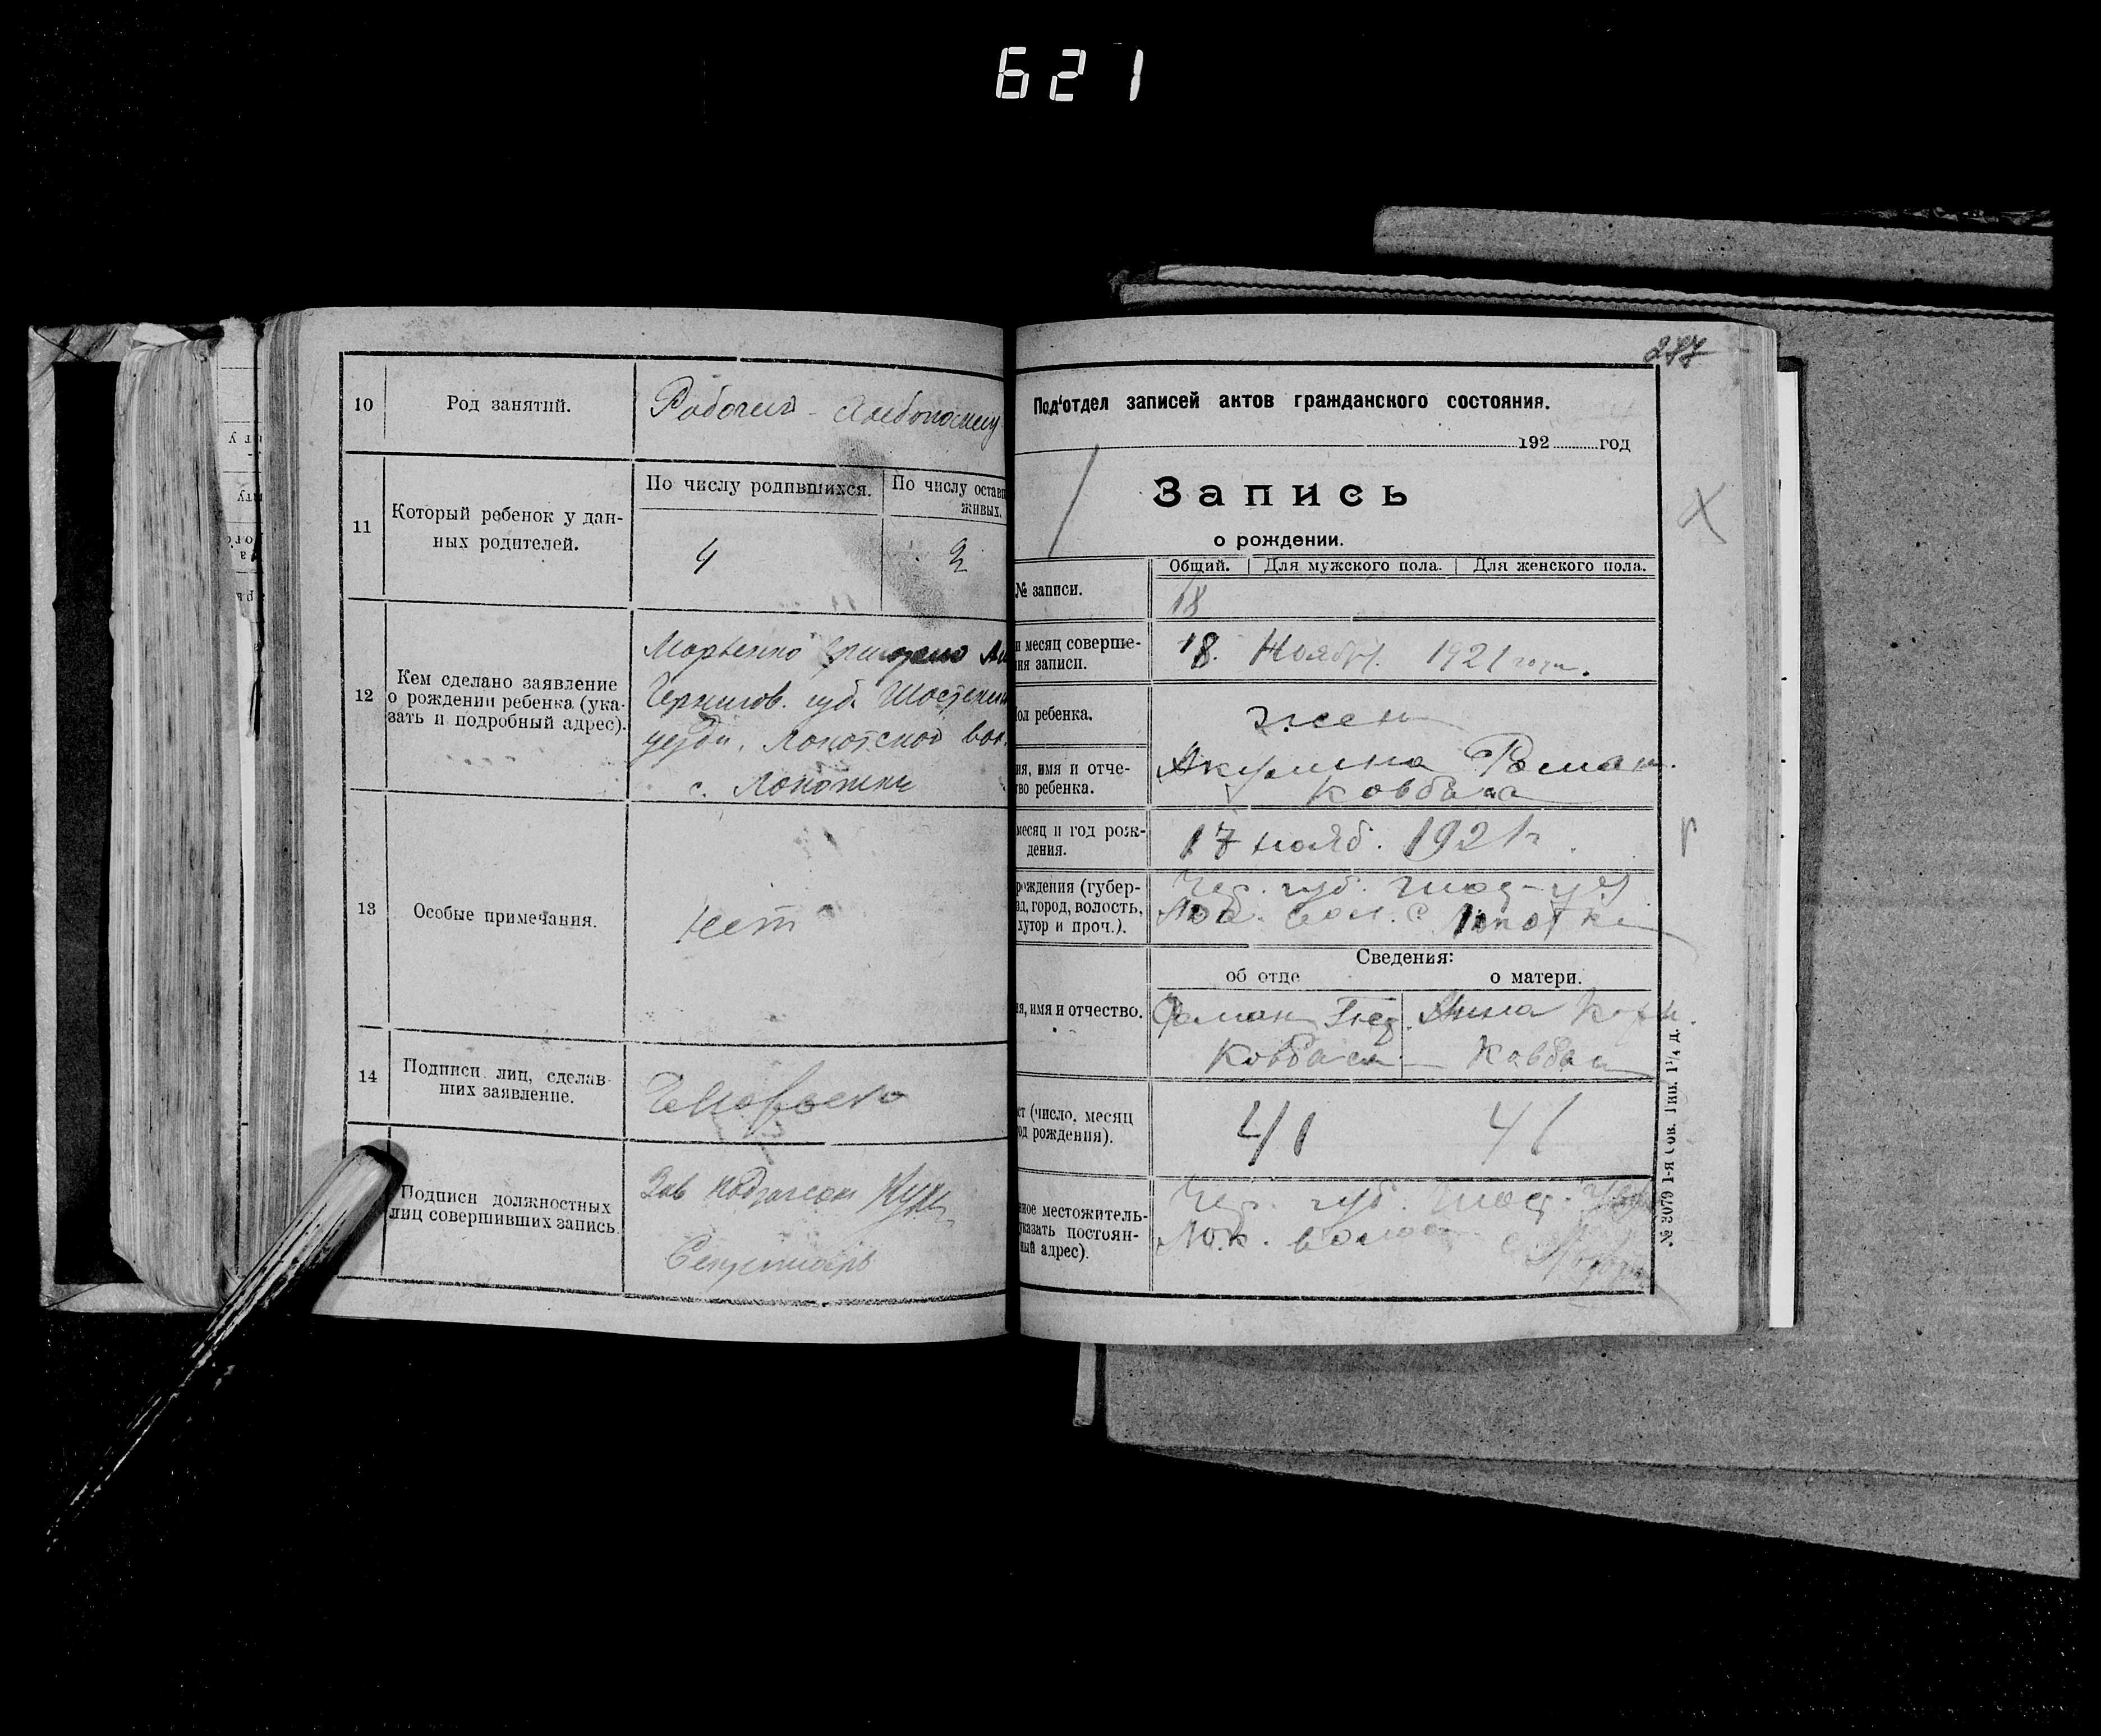 621
10
Род занятий.
Рабочий - Хлебопашец
11
Который ребенок у дан-
ных родителей.
По числу родившихся.
По числу остав
живых.
4
2
12
Кем сделано заявление
о рождении ребенка (ука-
зать и подробный адрес).
Марченко
Чернигов. губ. Шостенск
уезда,
вол.
с.
13
Особые примечания.
Нет
14
Подписи лиц, сделав-
ших заявление.
Подписи должностных
лиц совершивших запись.
Зав
287
Под‘отдел записей актов гражданского состояния.
192 год
Запись
о рождении.
№ записи.
Общий. Для мужского пола. Для женского пола.
18
и месяц соверше-
ния записи.
18. Ноября. 1921 года.
ол ребенка.
жен
ия, имя и отче-
тво ребенка.
Акулина Роман.
Ковбаса
месяц и год рож-
дения.
17 нояб. 1921 г.
рождения (губер-
зд, город, волость,
хутор и проч.).
Чер. губ. Шос. уез
вол. с
Сведения:
об отце
о матери.
ия, имя и отчество.
Роман
Ковбаса
Анна Корн.
Ковбаса
ст (число, месяц
од рождения).
41
41
нное местожитель-
указать постоян-
ный адрес).
Чер. губ. Шос. уез
Лок. волос
№ 3079 1-я Сов. Тип. 1¼ д.